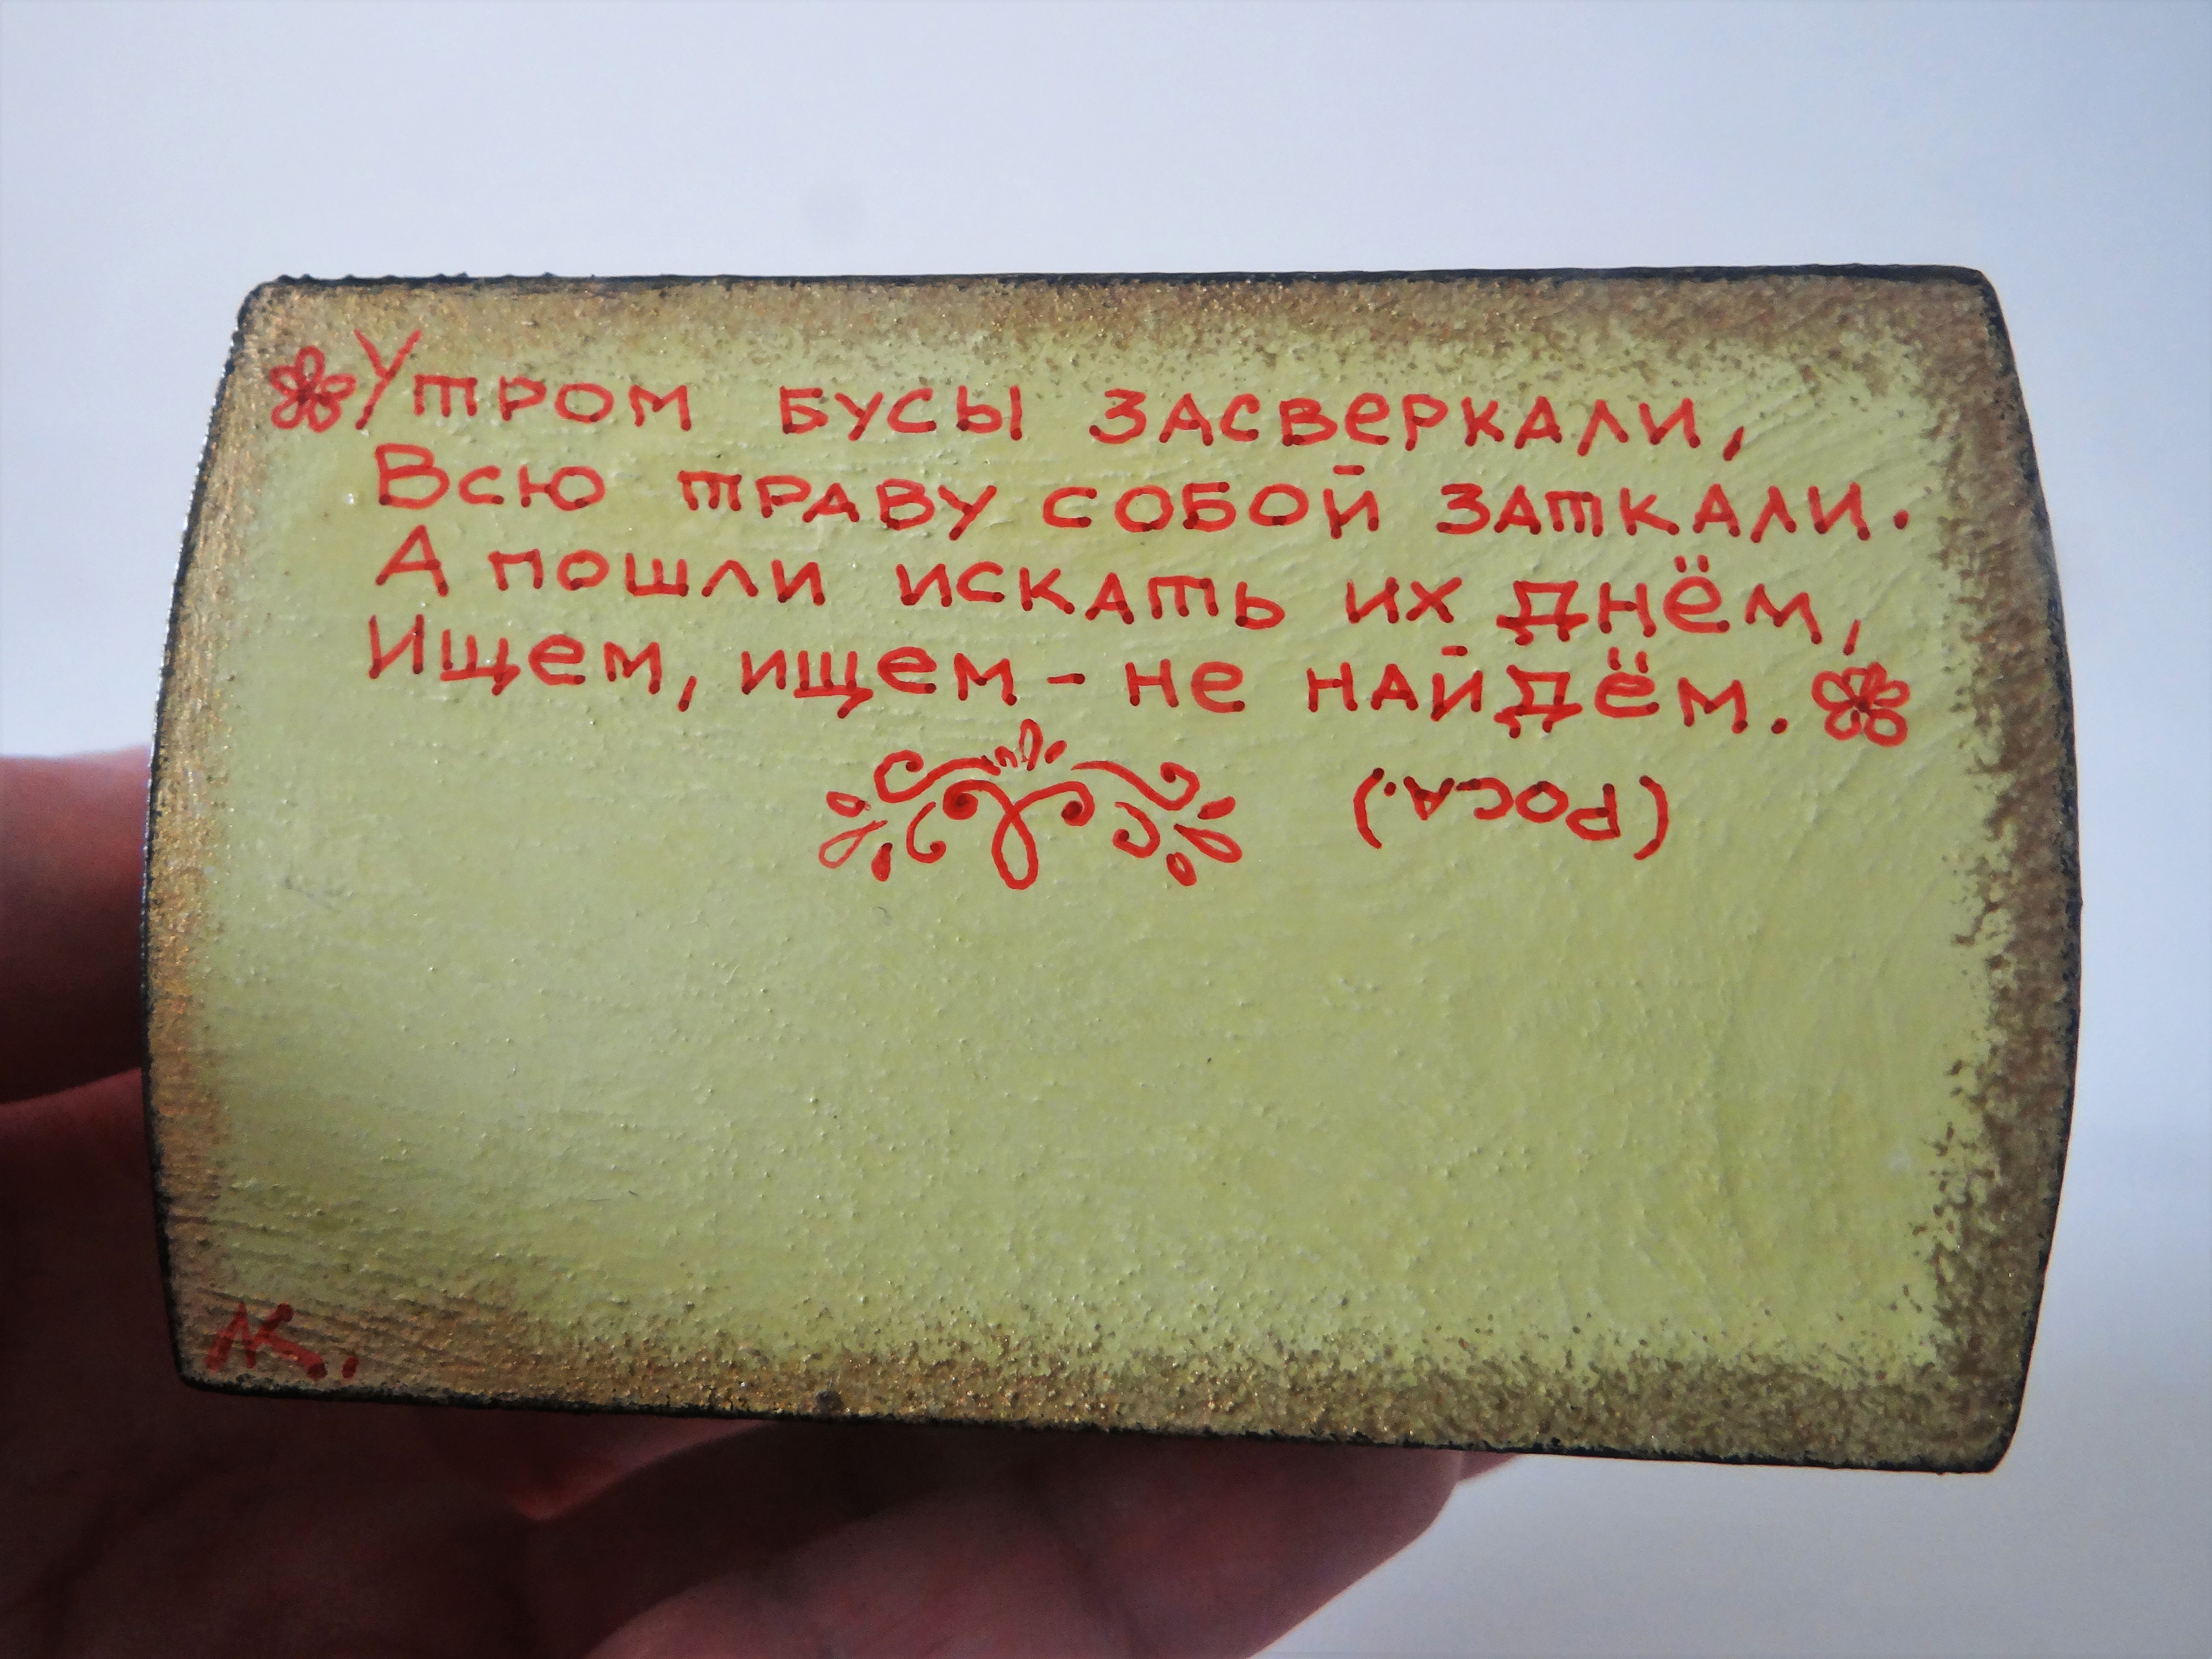 Утром бусы засверкали,
Всю траву собой заткали.
А пошли искать их днём,
Ищем, ищем - не найдём.
(Роса.)